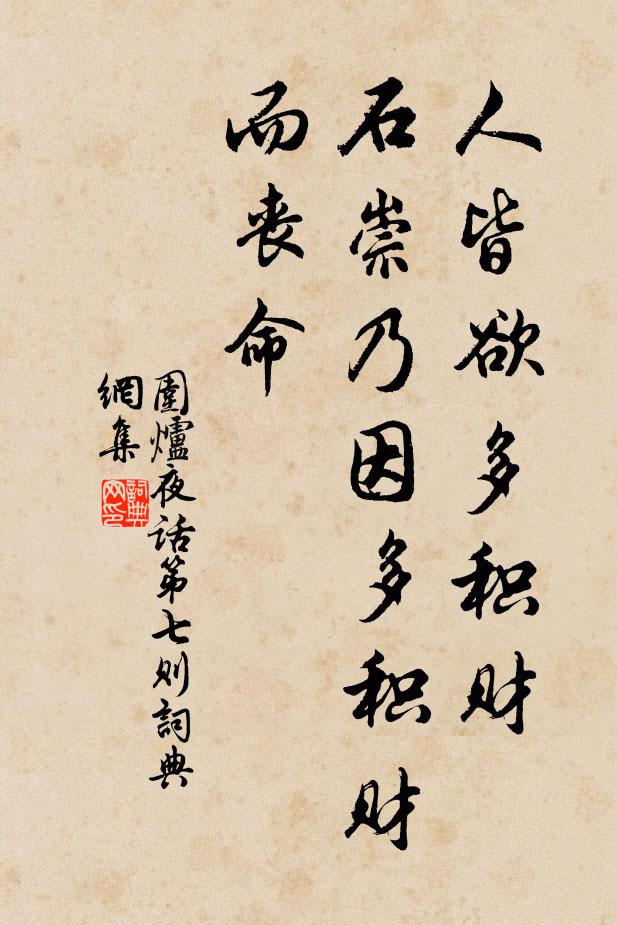 人皆欲多积财
石崇乃因多积财
而丧命
圍爐夜话第七则詞典
網集
詞典
网印